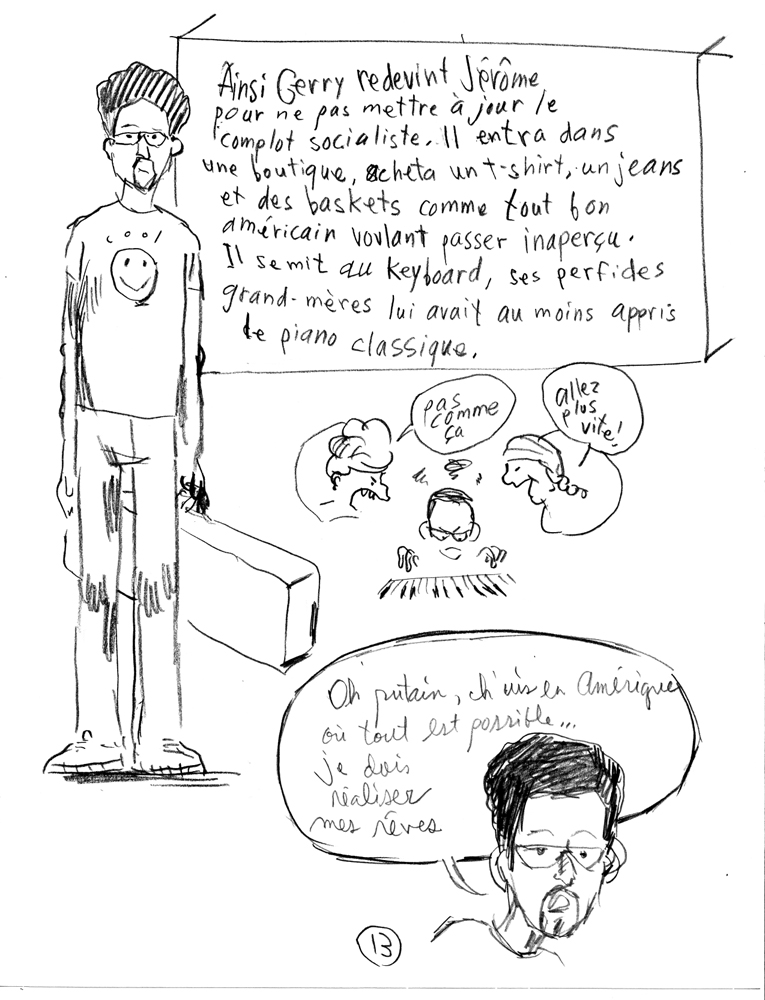 Ainsi Gerry redevint Jérôme
pour ne pas mettre à jour le
complot socialiste. Il entra dans
une boutique, acheta un t-shirt, un jeans
et des baskets comme tout bon
américain voulant passer inaperçu.
Il se mit au keyboard, ses perfides
grand-mères lui avait au moins appris
le piano classique.
cool
pas
comme
ça
allez
plus
vite!
Oh putain, ch'uis en Amérique
où tout est possible...
je dois
réaliser
mes rêves
13